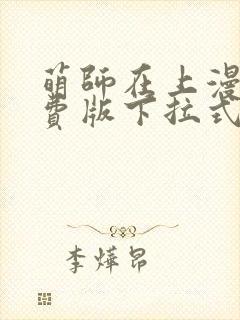 萌師在上漫
費版下拉式
李燁昂